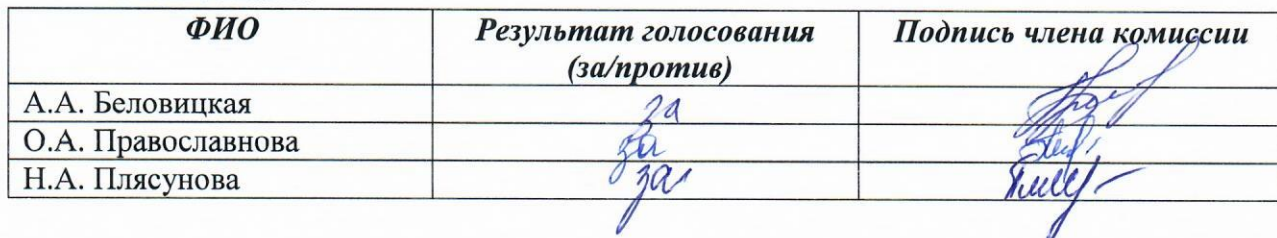 ФИО Результат голосования Подпись члена комиссии
(за/против)
А.А. Беловицкая за
О.А. Православнова за
Н.А. Плясунова за